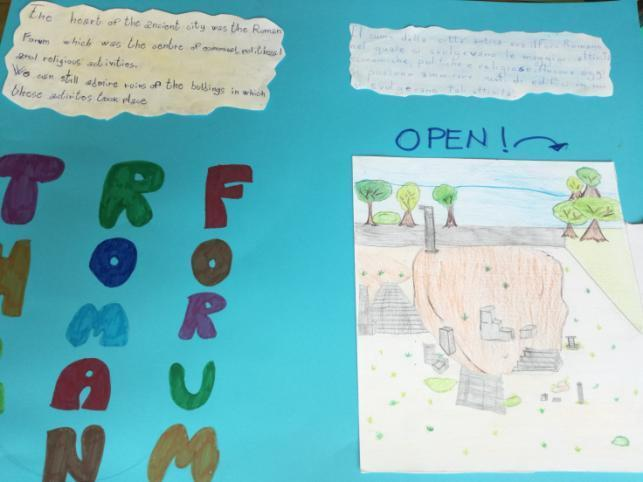 The heart of the ancient city was the Roman
Forum which was the centre of commercial, political
and religious activities.
We can still admire ruins of the buildings in which
these activities took place
Il cuore della città antica era il Foro Romano
nel quale si svolgevano le maggiori attività
economiche, politiche e religiose. Ancora oggi
si possono ammirare resti di edifici in cui
si svolgevano tali attività
OPEN!
T R F
H O O
M R
A U
N M